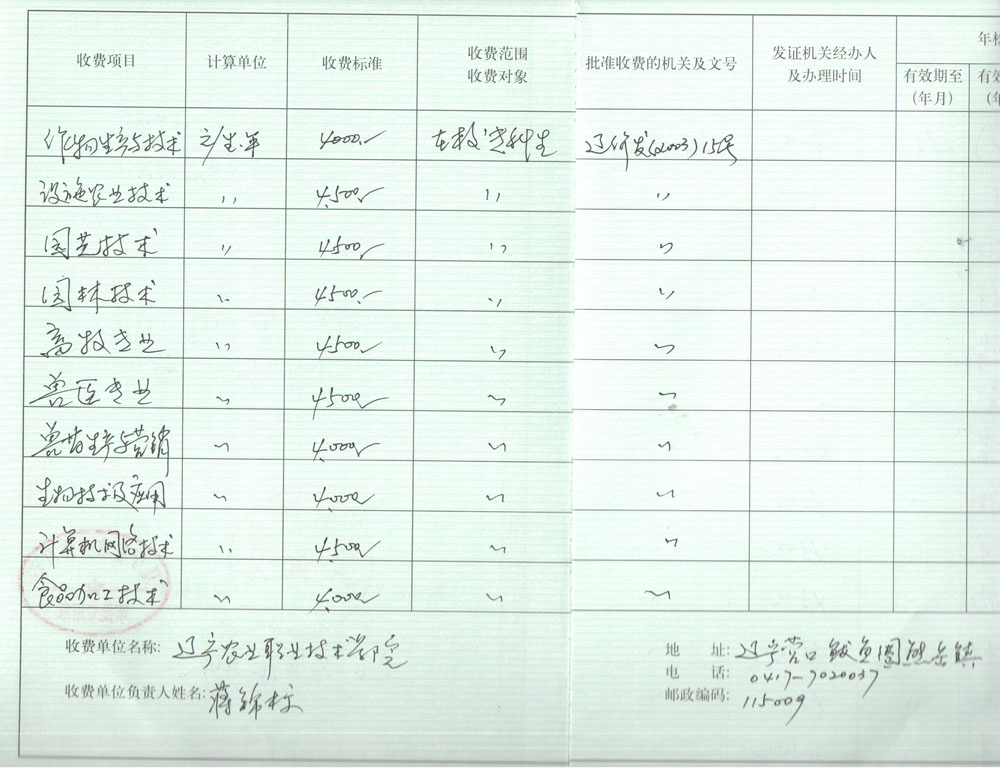 收费项目 计算单位 收费标准 收费范围 收费对象 批准收费的机关及文号 发证机关经办人 及办理时间 年检
有效期至 (年月) 有效
作物生产与技术 元/生.年 4000.- 在校专科生 辽价发(2003)15号
设施农业技术 〃 4500.- 〃 〃
园艺技术 〃 4500.- 〃 〃
园林技术 〃 4500.- 〃 〃
高牧专业 〃 4500.- 〃 〃
兽医专业 〃 4500.- 〃 〃
生产与营销 〃 4000.- 〃 〃
生物技术及应用 〃 4000.- 〃 〃
计算机网络技术 〃 4500.- 〃 〃
食品加工技术 〃 4000.- 〃 〃
收费单位名称: 辽宁农业职业技术学院
收费单位负责人姓名: 蒋锦标
地 址: 辽宁营口鲅鱼圈熊岳镇
电 话: 0417-7020037
邮政编码: 115009